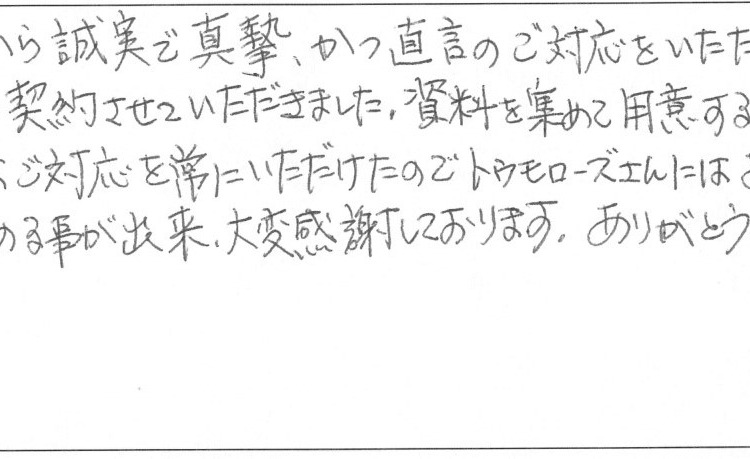 から誠実で真摯、かつ直言のご対応をいただ
契約させていただきました。資料を集めて用意する
ご対応を常にいただけたのでトゥモローズさんには
める事が出来、大変感謝しております。ありがとう